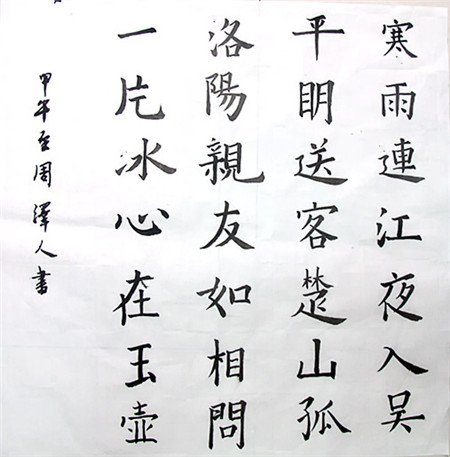 寒雨連江夜入吴
平眀送客楚山孤
洛陽親友如相問
一片冰心在玉壶
甲午周澤人書